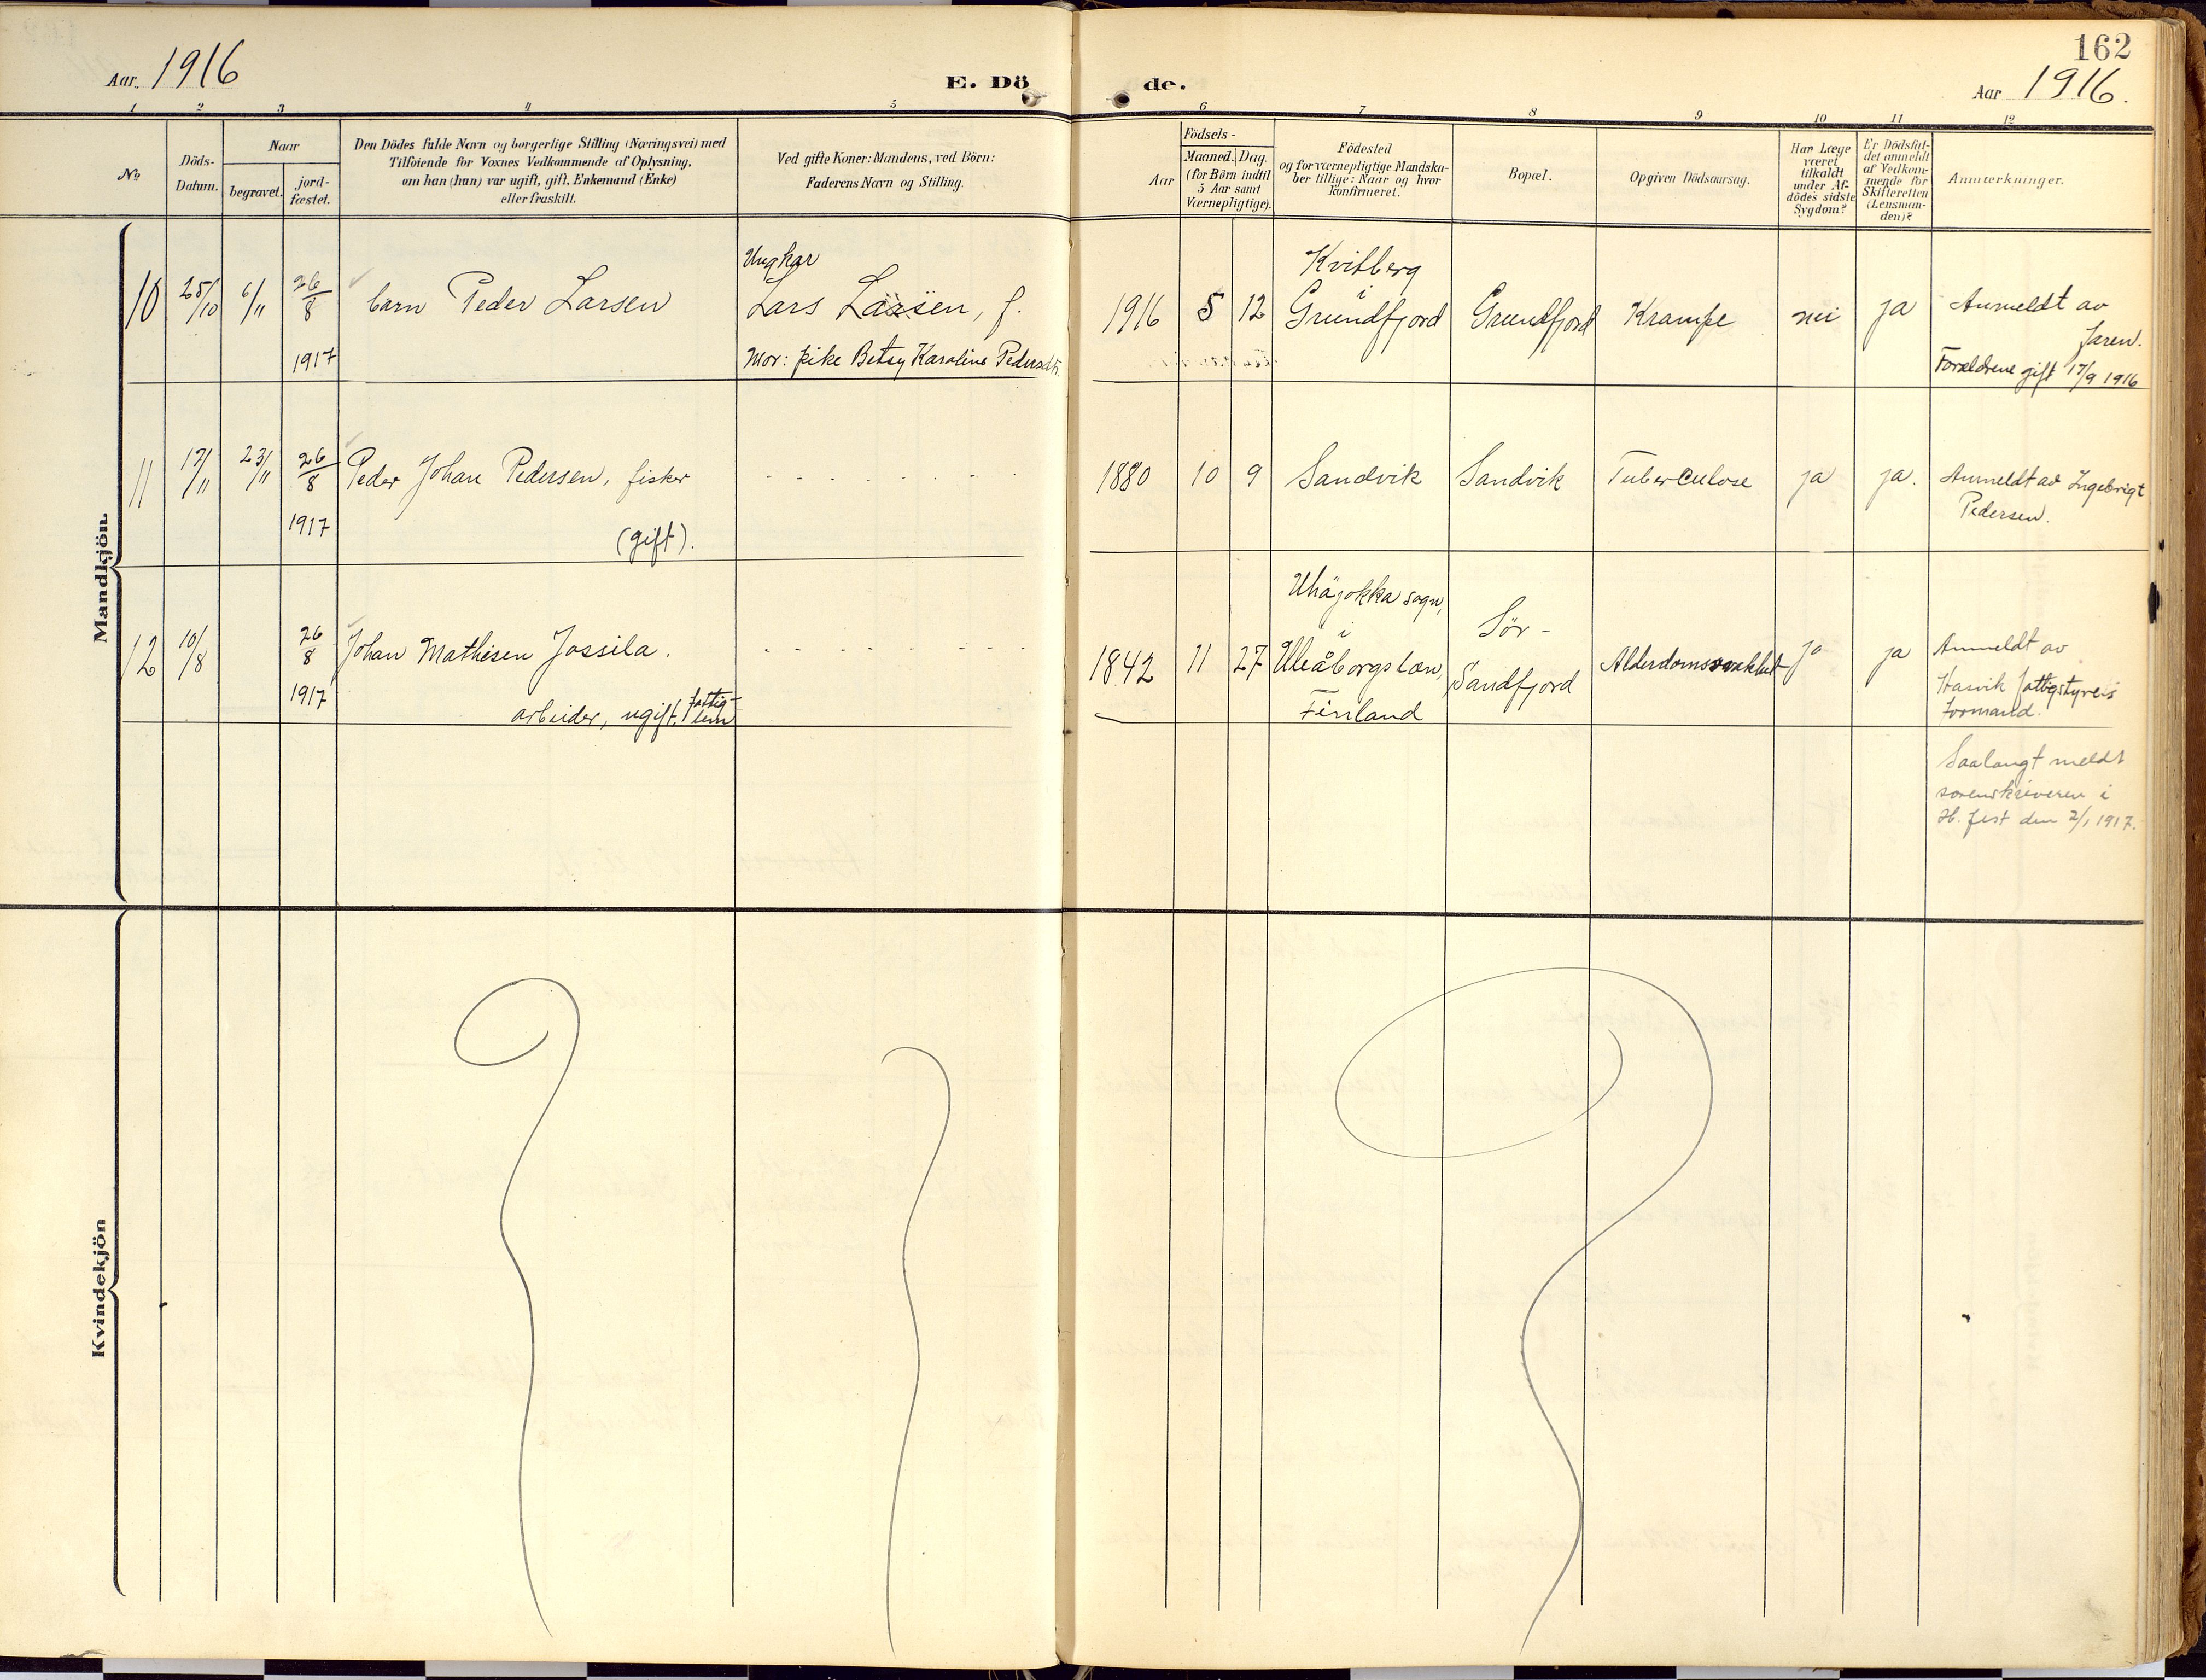 162
Aar. 1916
E. Dö de.
Aar 1916.
1 2 3 4 5 6 7 8 9 10 11 12
No
Döds-
Datum.
Naar
begravet.
jord-
fæstet.
Den Dödes fulde Navn og borgerlige Stilling (Næringsvei) med
Tilföiende for Voxnes Vedkommende af Oplysning,
om han (hun) var ugift, gift, Enkemand (Enke)
eller fraskilt.
Ved gifte Koner: Mandens, ved Börn:
Faderens Navn og Stilling.
Aar
Födsels-
Maaned. Dag.
(for Börn indtil
5 Aar samt
Værnepligtige).
Födested
og for værnepligtige Mandska-
ber tillige: Naar og hvor
konfirmeret.
Bopæl.
Opgiven Dödsaarsag.
Har Læge
været
tilkaldt
under Af-
dödes sidste
Sygdom?
Er Dödsfal-
det anmeldt
af Vedkom-
mende for
Skifteretten
(Lensman-
den)?
Anmærkninger.
Mandkjön.
10
25/10
6/11
26/8
1917
barn Peder Larsen
Ungkar
Lars Larsen, f.
Mor: pike Betsy Karoline Pedersdtr.
1916
5
12
Kvitberg
i
Grundfjord
Grundfjord
Krampe
nei
ja
Anmeldt av
faren.
Forældrene gift 17/9 1916
11
17/11
23/11
26/8
1917
Peder Johan Pedersen, fisker
(gift).
1880
10
9
Sandvik
Sandvik
Tuberculose
ja
ja.
Anmeldt av Ingebrigt
Pedersen.
12
10/8
26/8
1917
Johan Mathisen Jossila.
arbeider, ugift, fattig-
lem
1842
11
27
Uhäjokka sogn,
i
Uleåborgs læn,
Finland
Sör-
Sandfjord
Alderdomssvakhet
ja
ja
Anmeldt av
Hasvik fattigstyreis
formand.
Saalangt meldt
sorenskriveren i
H.fest den 2/1 1917.
Kvindekjön